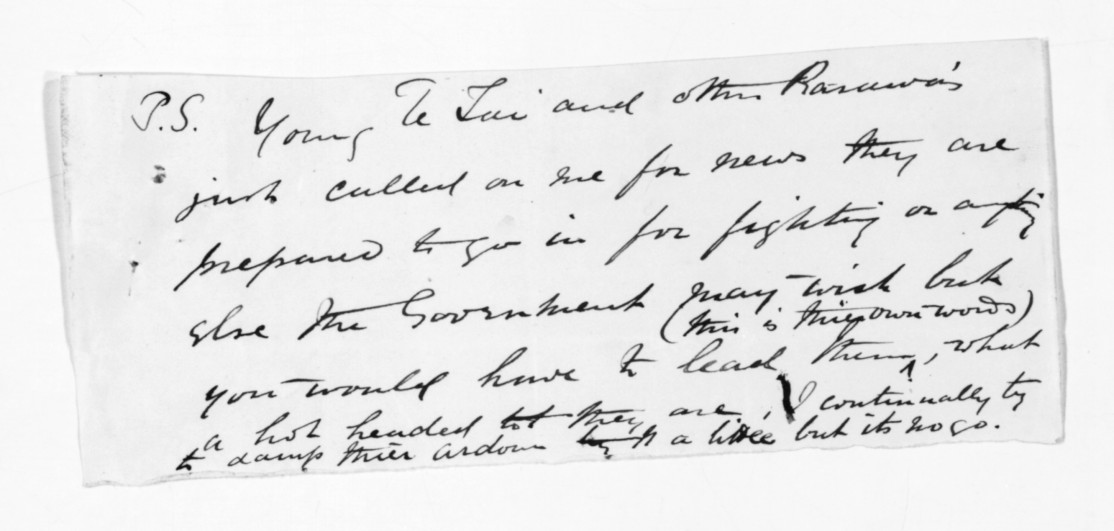 P.S. Young Te Tai and other Rarawa's
just called on me for news they are
prepared to go in for fighting or anything
else the Government may wish but
(this is thier own words)
you would have to lead them, what
a hot headed lot they are, I continually try
to damp thier ardour a little but its no go.